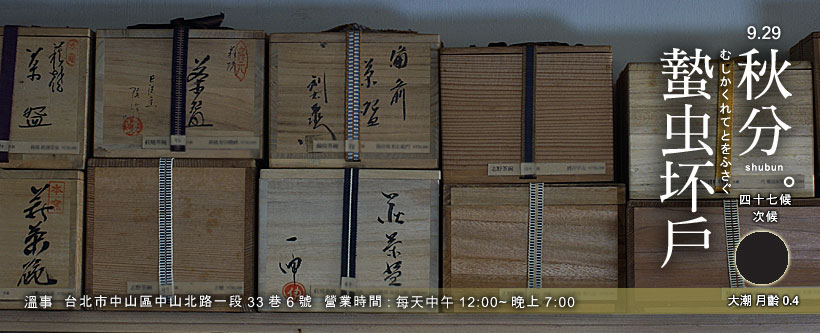 9.29
秋分。
shubun
むしかくれてとをふさぐ
蟄虫坏戶
四十七候
次候
大潮 月齡 0.4
溫事 台北市中山區中山北路一段 33 巷 6 號 營業時間 : 每天中午 12:00~ 晚上 7:00
茶盌
茶盌
備前
茶盌
萩茶碗
茶盌